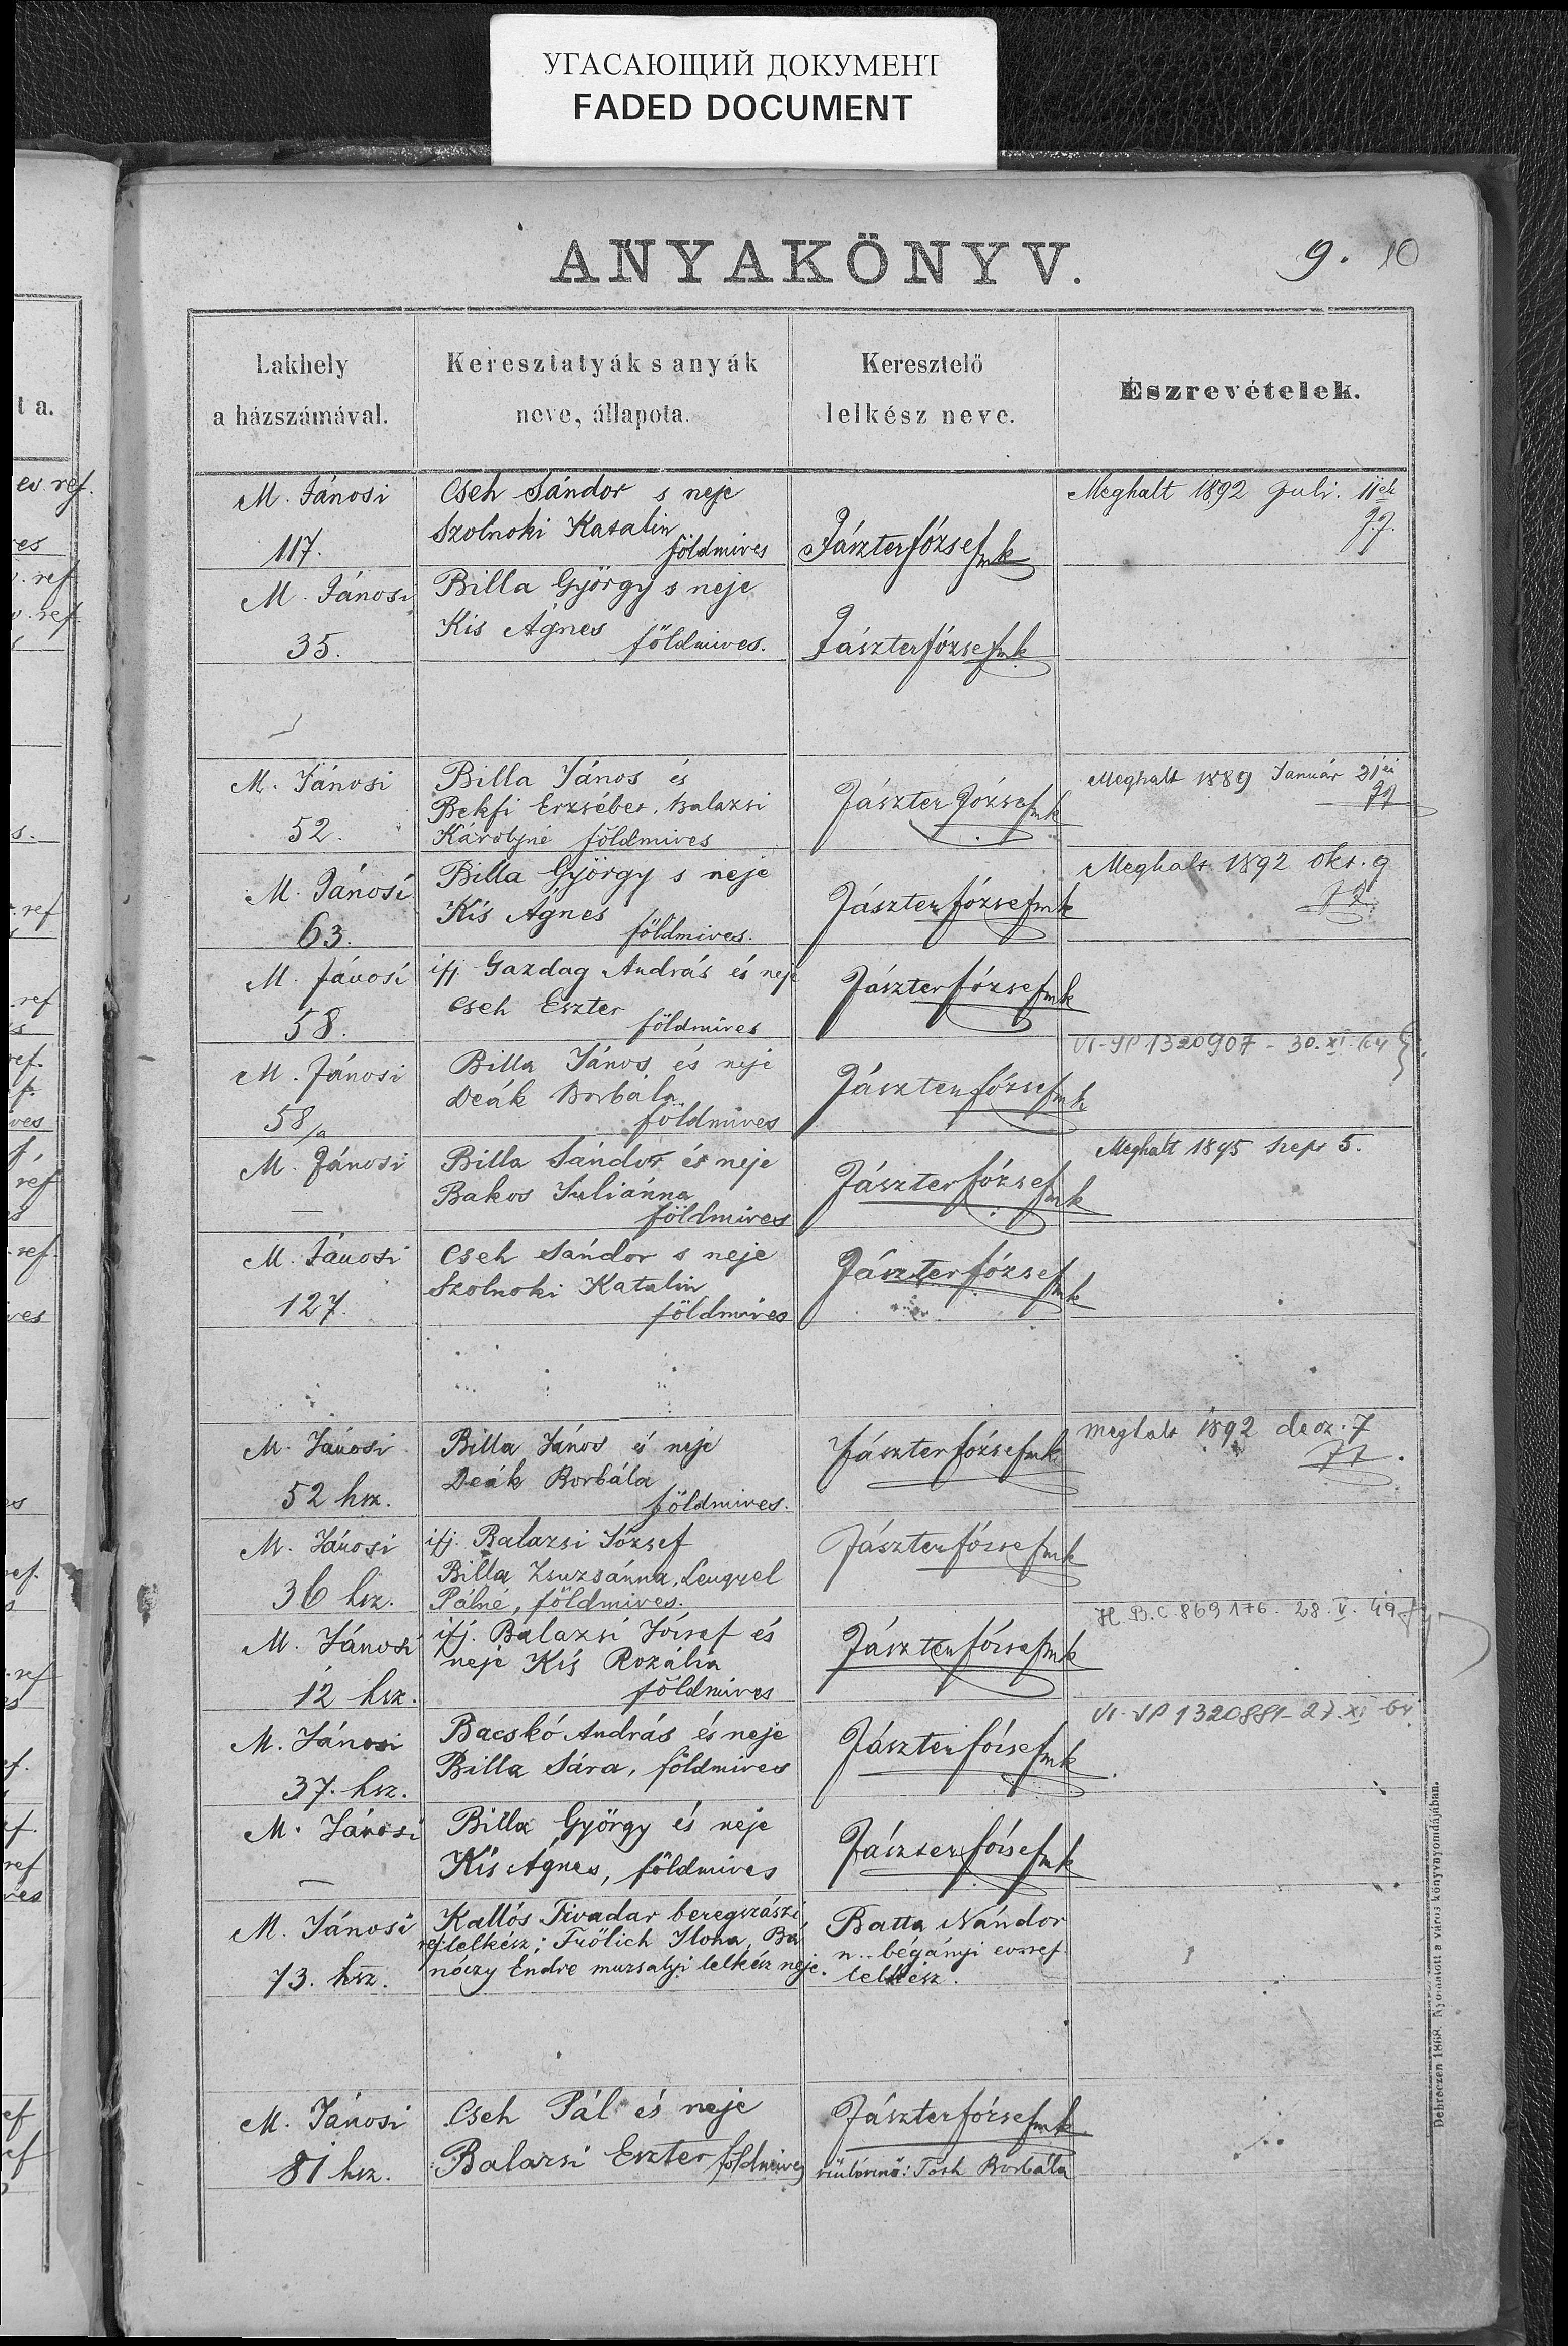 УГАСАЮЩИЙ ДОКУМЕНТ
FADED DOCUMENT
ANYAKÖNYV.
9. 10
Lakhely
a házszámával.
Keresztatyák s anyák
neve, állapota.
Keresztelő
lelkész neve.
Észrevételek.
M. Jánosi
117.
Cseh Sándor s neje
Szolnoki Katalin
földmives
Jászter József mk
Meghalt 1892 Juli. 11ek
M. Jánosi
35.
Billa György s neje
Kis Ágnes földmives.
Jászter József mk
M. Jánosi
52.
Billa János és
Bekfi Erzsébet, Balazsi
Károlyné földmives
Jászter József mk
Meghalt 1889 Január 21ei
M. Jánosi
63.
Billa György s neje
Kis Ágnes
földmives.
Jászter József mk
Meghalt 1892 Okt. 9
M. Jánosi
58.
ifj. Gazdag András és neje
Cseh Eszter
földmives
Jászter József mk
M. Jánosi
58/a
Billa János és neje
Deák Borbála
földmives
Jászter József mk
VI-ЯР 1320907 - 30.XI.64
M. Jánosi
—
Billa Sándor és neje
Bakos Juliánna
földmives
Jászter József mk
Meghalt 1895 Szept 5.
M. Jánosi
127.
Cseh Sándor s neje
Szolnoki Katalin
földmives
Jászter József mk
M. Jánosi
52 hsz.
Billa János és neje
Deák Borbála
földmives.
Jászter József mk
meghalt 1892 decz. 7
M. Jánosi
36 hsz.
ifj. Balazsi József
Billa Zsuzsánna, Lengyel
Pálné, földmives.
Jászter József mk
M. Jánosi
12 hsz.
ifj. Balazsi József és
neje Kis Rozália
földmives
Jászter József mk
869176. 28.V.49
M. Jánosi
37. hsz.
Bacskó András és neje
Billa Sára, földmives
Jászter József mk
1320881-27.XI-64
M. Jánosi
—
Billa György és neje
Kis Ágnes, földmives
Jászter József mk
M. Jánosi
73. hsz.
Kallós Tivadar beregszászi
ref lelkész; Frőlich Ilona, Bá
nóczy Endre muzsalyi lelkész neje.
Batta Nándor
n. bégányi ev. ref.
lelkész.
M. Jánosi
81 hsz.
Cseh Pál és neje
Balazsi Eszter földmives
Jászter József mk
szülésznő: Tóth Borbála
Debreczen 1868. Nyomatott a város könyvnyomdájában.